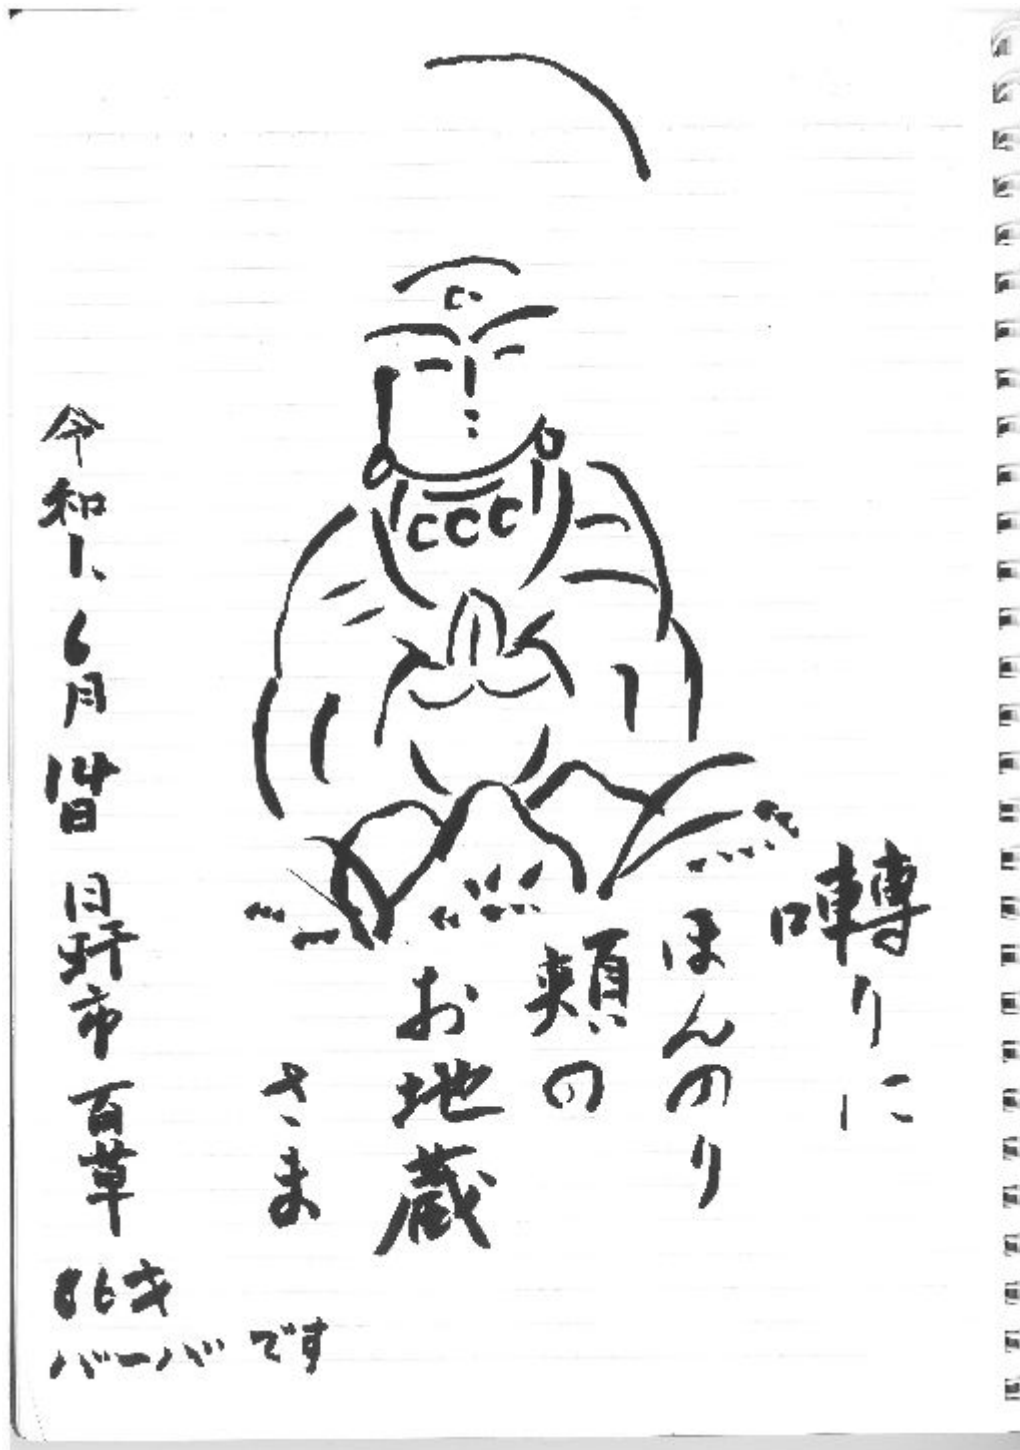 囀りに
ほんのり
頬の
お地蔵
さま
令和1、6月14日 日野市 百草
86才
バーバです